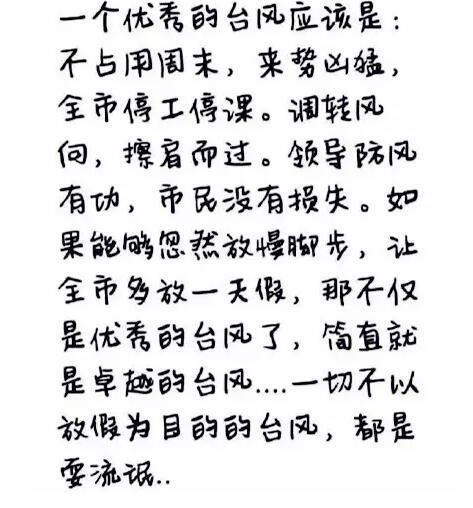 一个优秀的台风应该是：
不占用周末，来势凶猛，
全市停工停课。调转风
向，擦肩而过。领导防风
有功，市民没有损失。如
果能够忽然放慢脚步，让
全市多放一天假，那不仅
是优秀的台风了，简直就
是卓越的台风....一切不以
放假为目的的台风，都是
耍流氓..